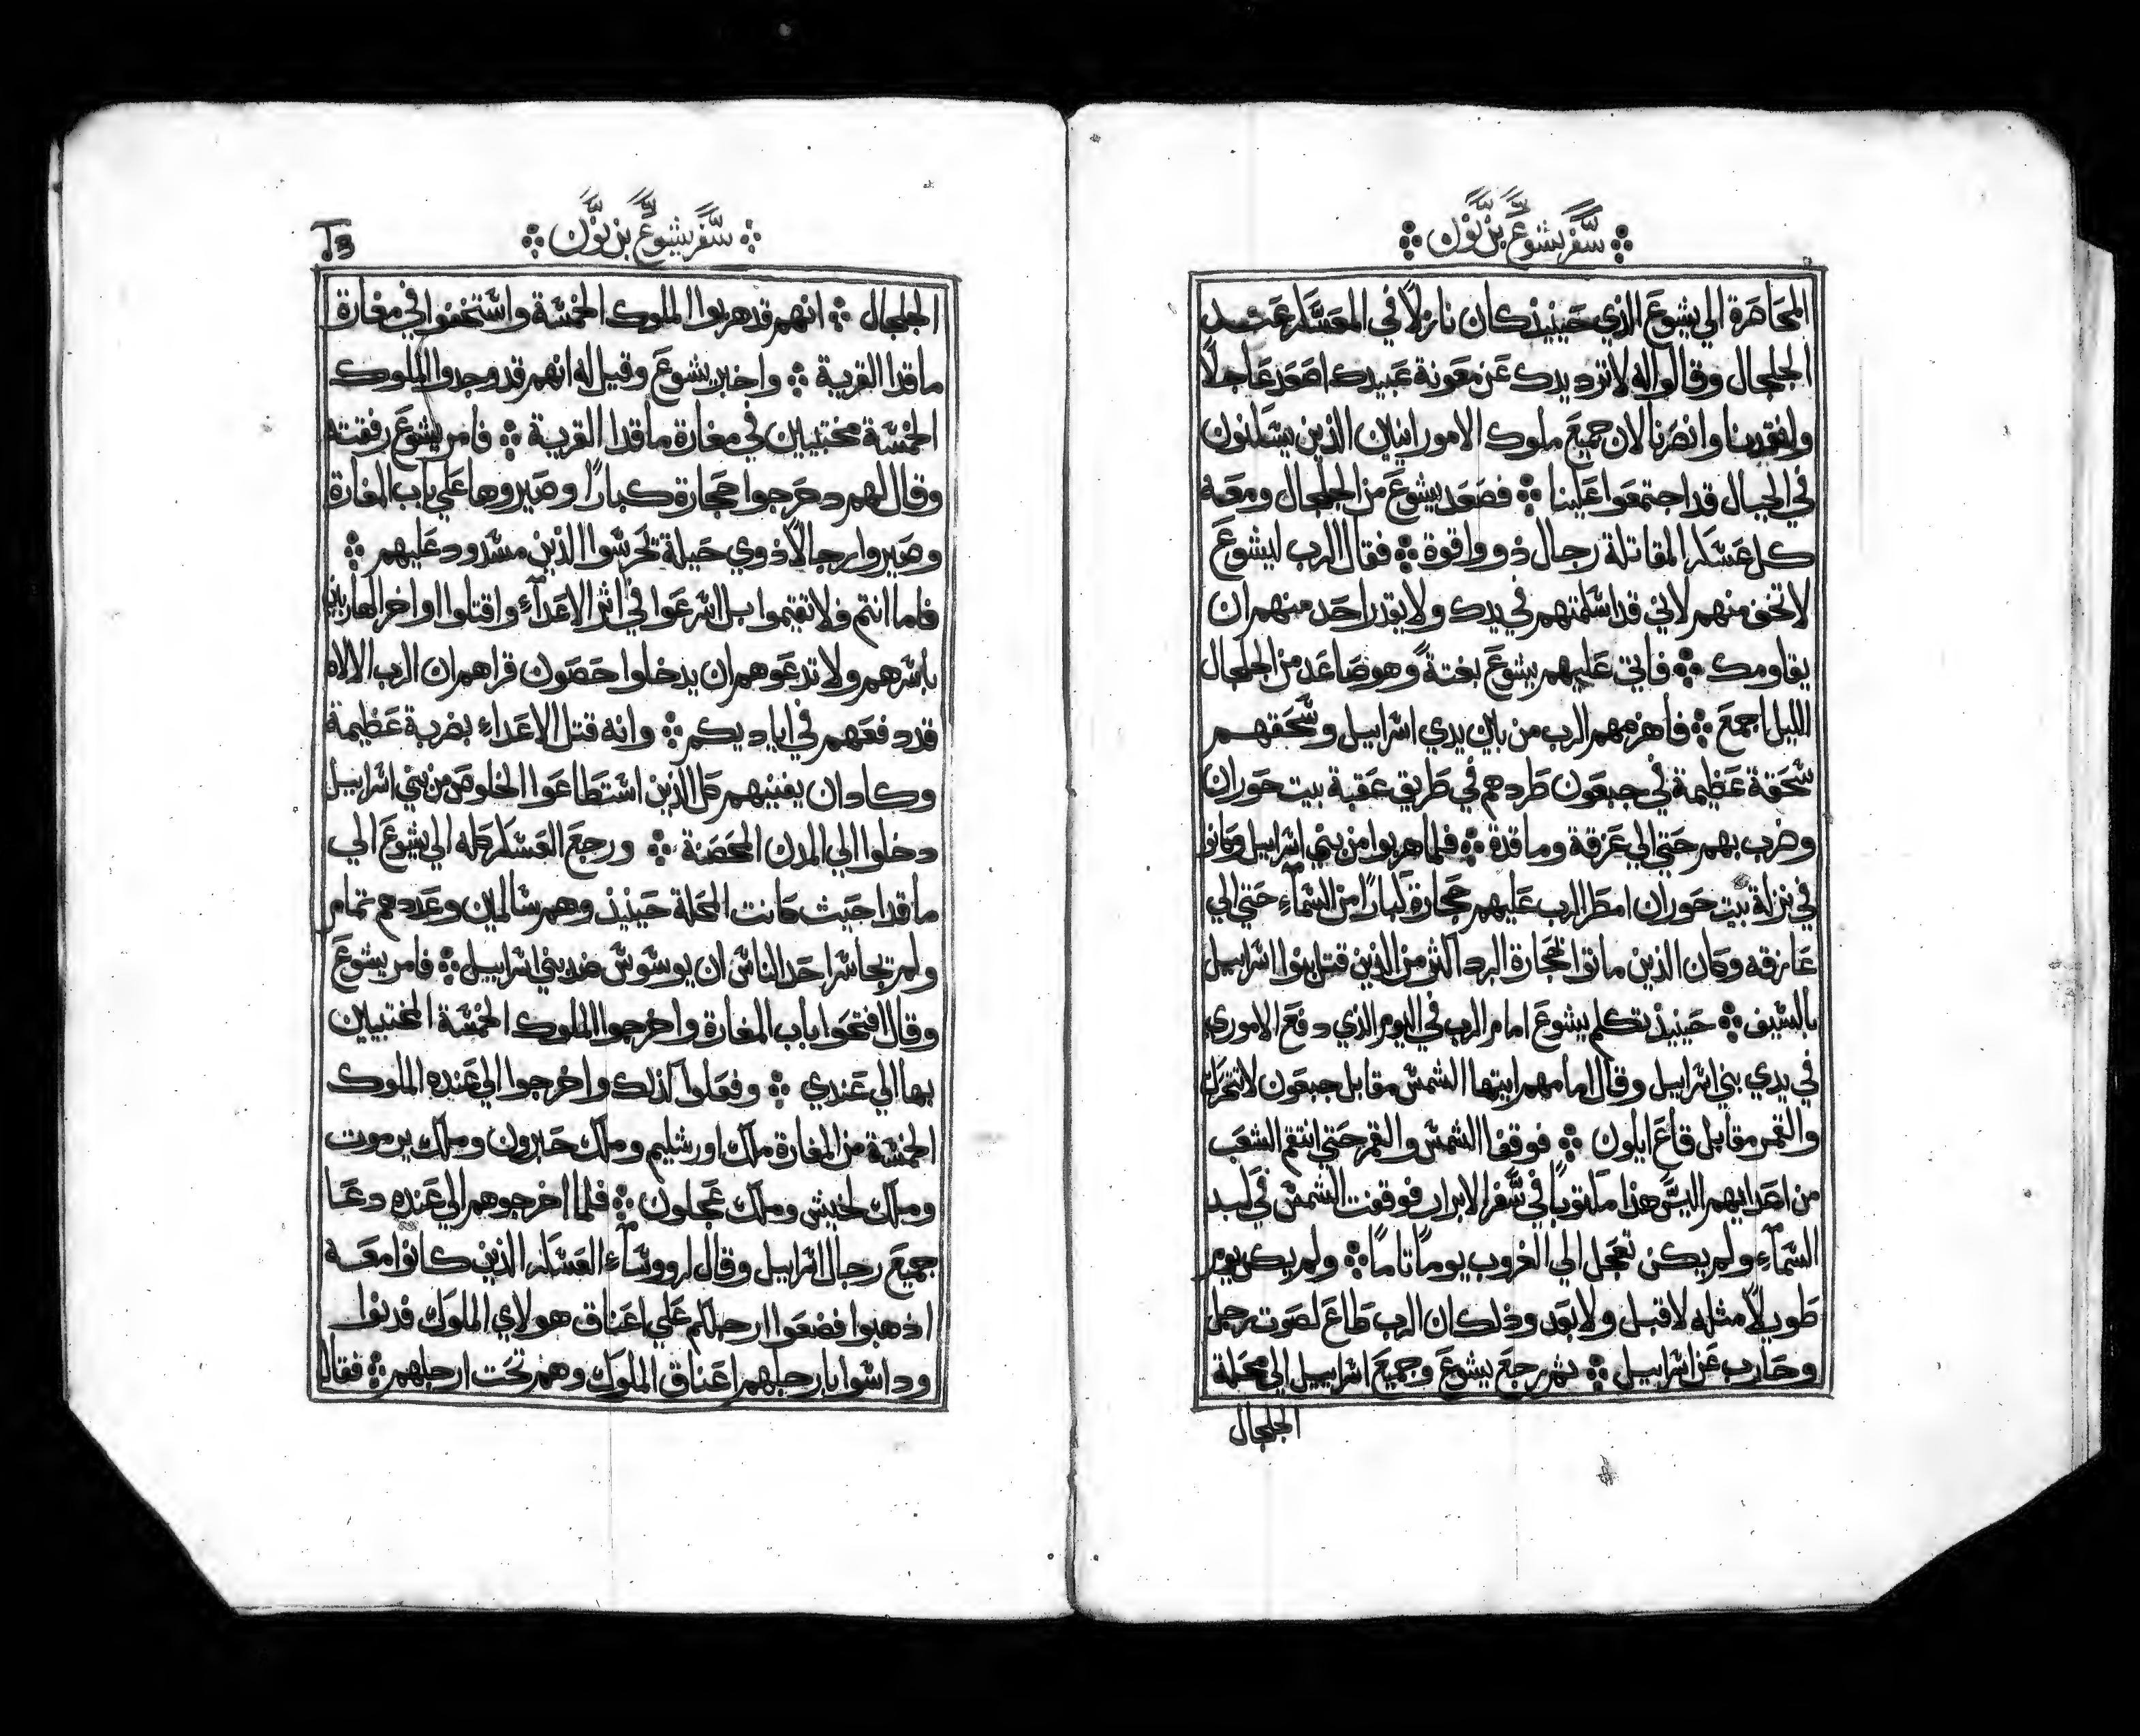 سفر يشوع بن نون
المحاصرة الي يشوع الذي حينيذ كان نازلاً في المعسكر عند
الجلجال وقالوا له لا ترد يدك عن معونة عبيدك اصعد عاجلاً
وانقدنا وانصرنا لان جميع ملوك الامورانيين الذين يسكنون
في الجبال قد اجتمعوا علينا ۞ فصعد يشوع من الجلجال ومعه
كل عسكر المقاتلة رجال ذووا قوة ۞ فقال الرب ليشوع
لا تخف منهم لاني قد اسلمتهم في يدك ولا يقدر احد منهم ان
يقاومك ۞ فاتي عليهم يشوع بغتةً وهو صاعد من الجلجال
الليل اجمع ۞ فاهزمهم الرب من بين يدي اسراييل وسحقهم
سحقة عظيمة في جبعون طردهم في طريق عقبة بيت حوران
وضرب بهم حتي الي عزقة وماقدة ۞ فلما هربوا من بني اسراييل وكانوا
في نزلة بيت حوران امطر الرب عليهم حجارة كباراً من السمآء حتي الي
عازقه وكان الذين ماتوا بحجارة البرد اكثر من الذين قتل بنوا اسراييل
بالسيف ۞ حينيذ تكلم يشوع امام الرب في اليوم الذي دفع الاموري
في يدي بني اسراييل وقال امامهم ايتها الشمس مقابل جبعون لا تتحرك
والقمر مقابل قاع ايلون ۞ فوقفا الشمس والقمر حتي انتقم الشعب
من اعدايهم اليس هذا مكتوباً في سفر الابرار فوقفت الشمس في كبد
السمآء ولم يكن تعجل الي الغروب يوماً تاماً ۞ ولم يكن يوم
طويلاً مثله لا قبل ولا بعد وذلك ان الرب طاع لصوت رجل
وحارب عن اسراييل ۞ ثم رجع يشوع وجميع اسراييل الي محلة
الجلجال
سفر يشوع بن نون
الجلجال ۞ انهم قد هربوا الملوك الخمسة واستخفوا في مغارة
ماقدا القرية ۞ واخبر يشوع وقيل له انهم قد وجدوا الملوك
الخمسة مختبيين في مغارة ماقدا القرية ۞ فامر يشوع رفقته
وقال لهم دحرجوا حجارة كباراً وصيروها علي باب المغارة
وصيروا رجالاً ذوي حيلة تحرسوا الذين مسدود عليهم ۞
فاما انتم فلا تقيموا بل اسرعوا في اثر الاعدآء واقتلوا اواخر الهاربين
باسرهم ولا تدعوهم ان يدخلوا حصون قراهم ان الرب الالاه
قد دفعهم في اياديكم ۞ وانه قتل الاعداء بضربة عظيمة
وكاد ان يفنيهم كل الذين استطاعوا الخلوص من بني اسراييل
دخلوا الي المدن المحصنة ۞ ورجع العسكر كله الي يشوع الي
ماقدا حيث كانت المحلة حينيذ وهم سالمين وعددهم تمام
ولم تجاسر احد الناس ان يوسوس ضد بني اسراييل ۞ فامر يشوع
وقال افتحوا باب المغارة واخرجوا الملوك الخمسة المختبيين
بها الي عندي ۞ وفعلوا كذلك واخرجوا الي عنده الملوك
الخمسة من المغارة ملك اورشليم وملك حبرون وملك يرموت
وملك لخيش وملك عجلون ۞ فلما اخرجوهم الي عنده دعا
جميع رجال اسراييل وقال لرووسآء العسكر الذين كانوا معه
اذهبوا فضعوا ارجلكم علي اعناق هولاي الملوك فدنوا
وداسوا بارجلهم اعناق الملوك وهم تحت ارجلهم ۞ فقال